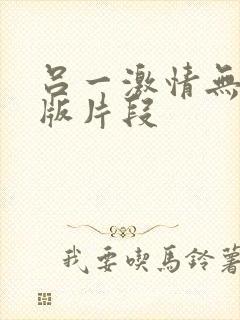 吕一激情無
版片段
我要喫馬鈴薯